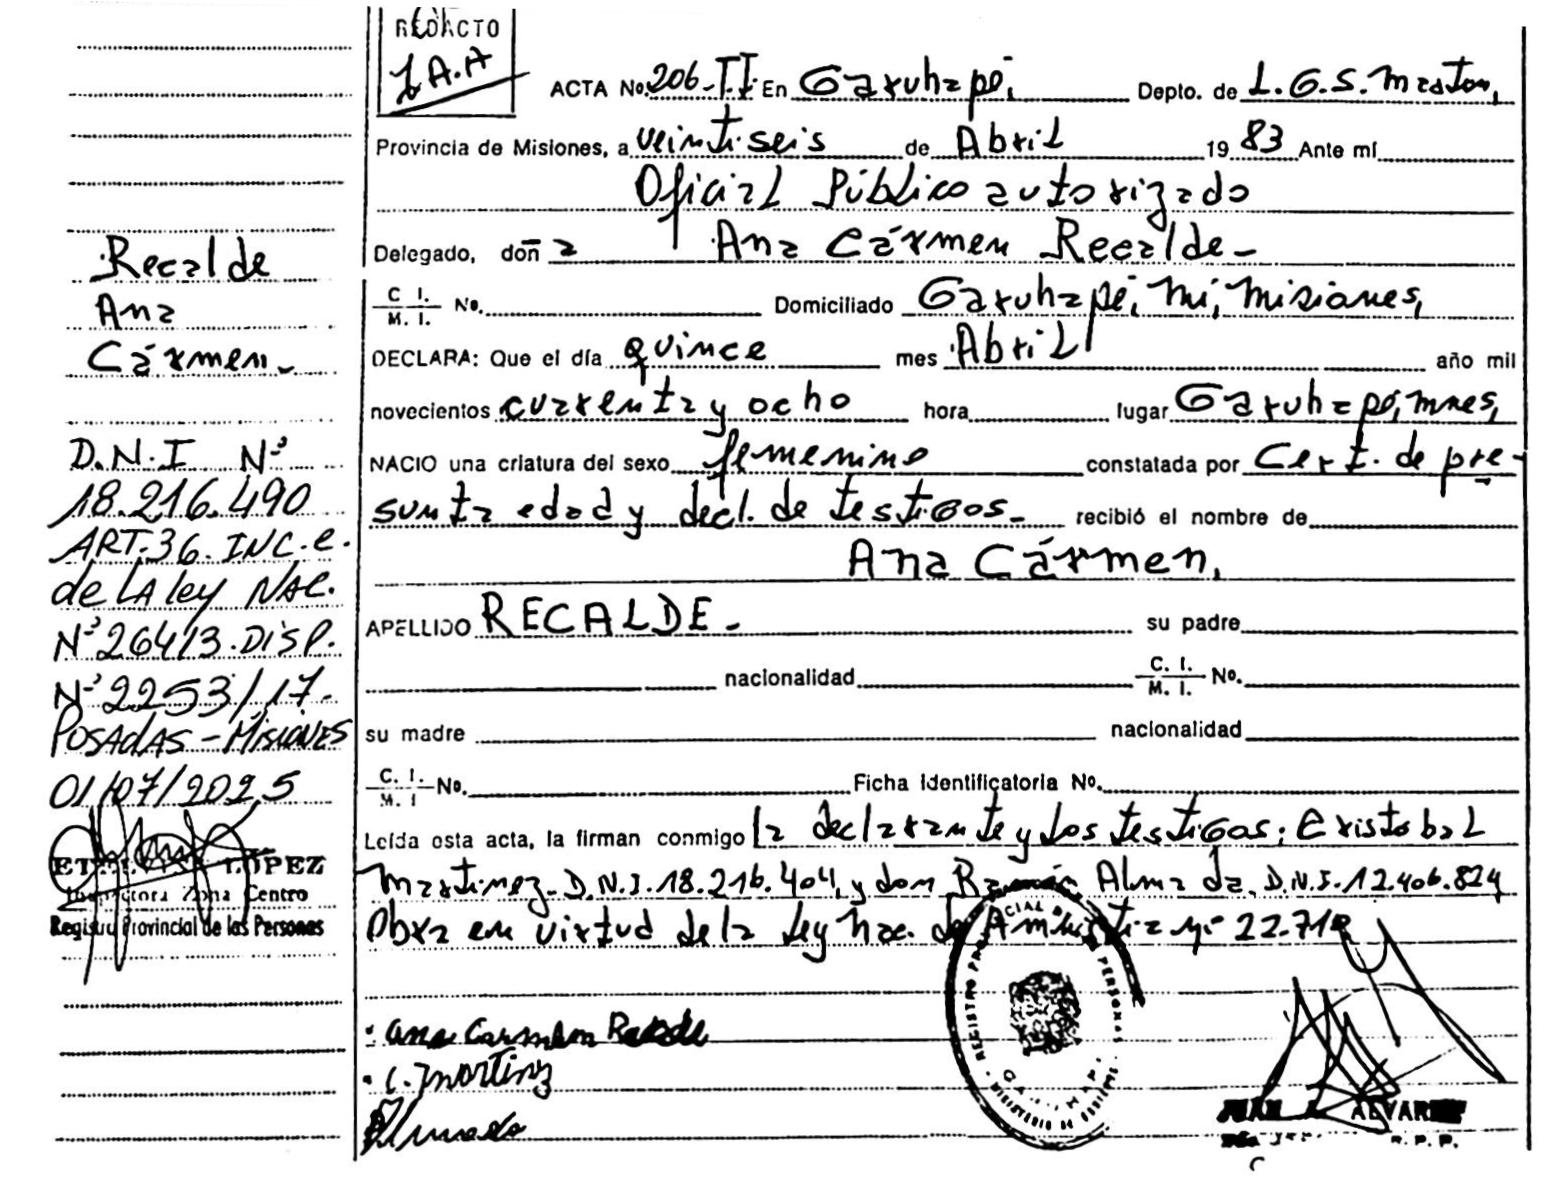 REDACTO
ACTA No. 206-II En Garuhapé, Depto. de L.G.S.Martín,
Provincia de Misiones, a veintiseis de Abril 19 83 Ante mí
Oficial Público autorizado
Delegado, doña Ana Cármen Recalde-
C. I. M. I. No. Domiciliado Garuhapé, Mí, Misiones,
DECLARA: Que el día quince mes Abril año mil
novecientos cuarenta y ocho hora lugar Garuhapé, Mnes,
NACIO una criatura del sexo femenino constatada por Cert. de pre-
sunta edad y decl. de testigos- recibió el nombre de
Ana Cármen,
APELLIDO RECALDE- su padre
nacionalidad C. I. M. I. No.
su madre nacionalidad
C. I. M. I No. Ficha Identificatoria No.
Leída esta acta, la firman conmigo la declarante y los testigos; Cristobal
Martinez D.N.I.18.216.404, y don Ramón Almada, D.N.I.12.406.824
Obra en virtud de la Ley Nac. de Amnistia Nº 22.712
Ana Carmen
C. Martinz
Almada
REGISTRO PROVINCIAL DE PERSONAS
JUAN ALVAREZ
R. P. P.
Recalde
Ana
Cármen-
D.N.I Nº
18.216.490
ART.36.INC.e.
de LA ley NAC.
Nº26413.DISP.
Nº2253/17-
POSADAS-MISIONES
01/07/2025
LOPEZ
Inspectora Zona Centro
Registro Provincial de las Personas